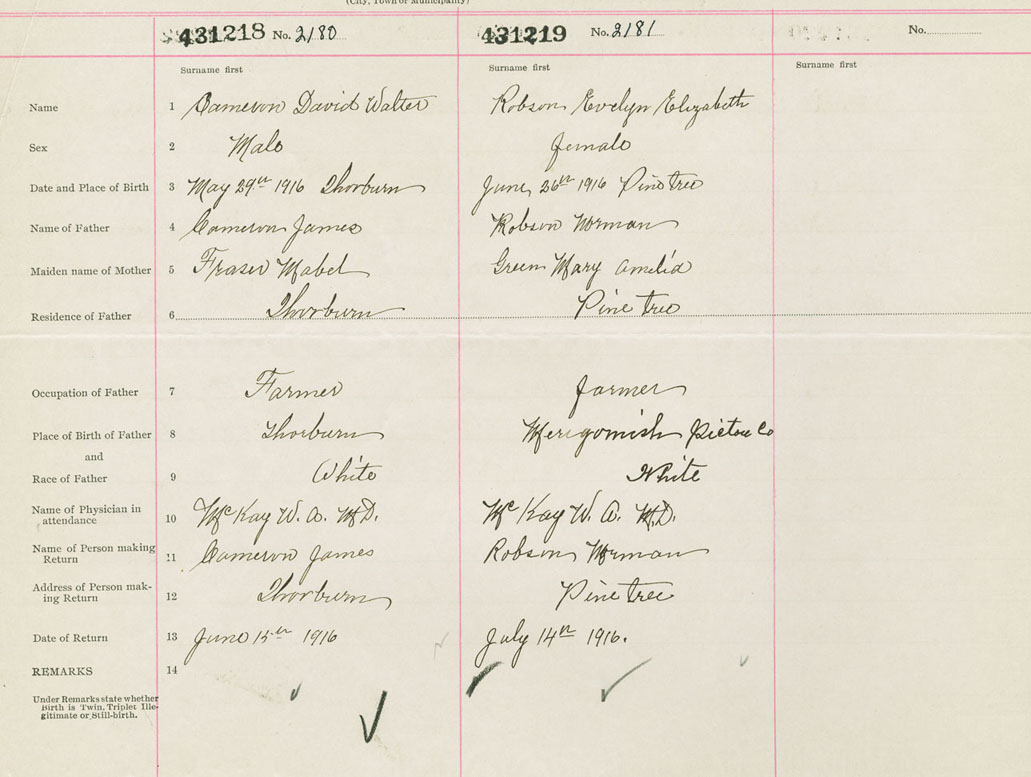 (City, Town or Municipality)
431218 No. 2180 431219 No. 2181 No.
Surname first Surname first Surname first
Name 1 Cameron David Walter Robson Evelyn Elizabeth
Sex 2 Male female
Date and Place of Birth 3 May 29th 1916 Thorburn June 26th 1916 Pine tree
Name of Father 4 Cameron James Robson Norman
Maiden name of Mother 5 Fraser Mabel Green Mary Amelia
Residence of Father 6 Thorburn Pine tree
Occupation of Father 7 Farmer farmer
Place of Birth of Father 8 Thorburn Merigomish Pictou Co
and
Race of Father 9 White White
Name of Physician in
attendance 10 McKay W. A. M.D. McKay W. A. M.D.
Name of Person making
Return 11 Cameron James Robson Norman
Address of Person mak-
ing Return 12 Thorburn Pine tree
Date of Return 13 June 15th 1916 July 14th 1916.
REMARKS 14
Under Remarks state whether
Birth is Twin, Triplet Ille-
gitimate or Still-birth.